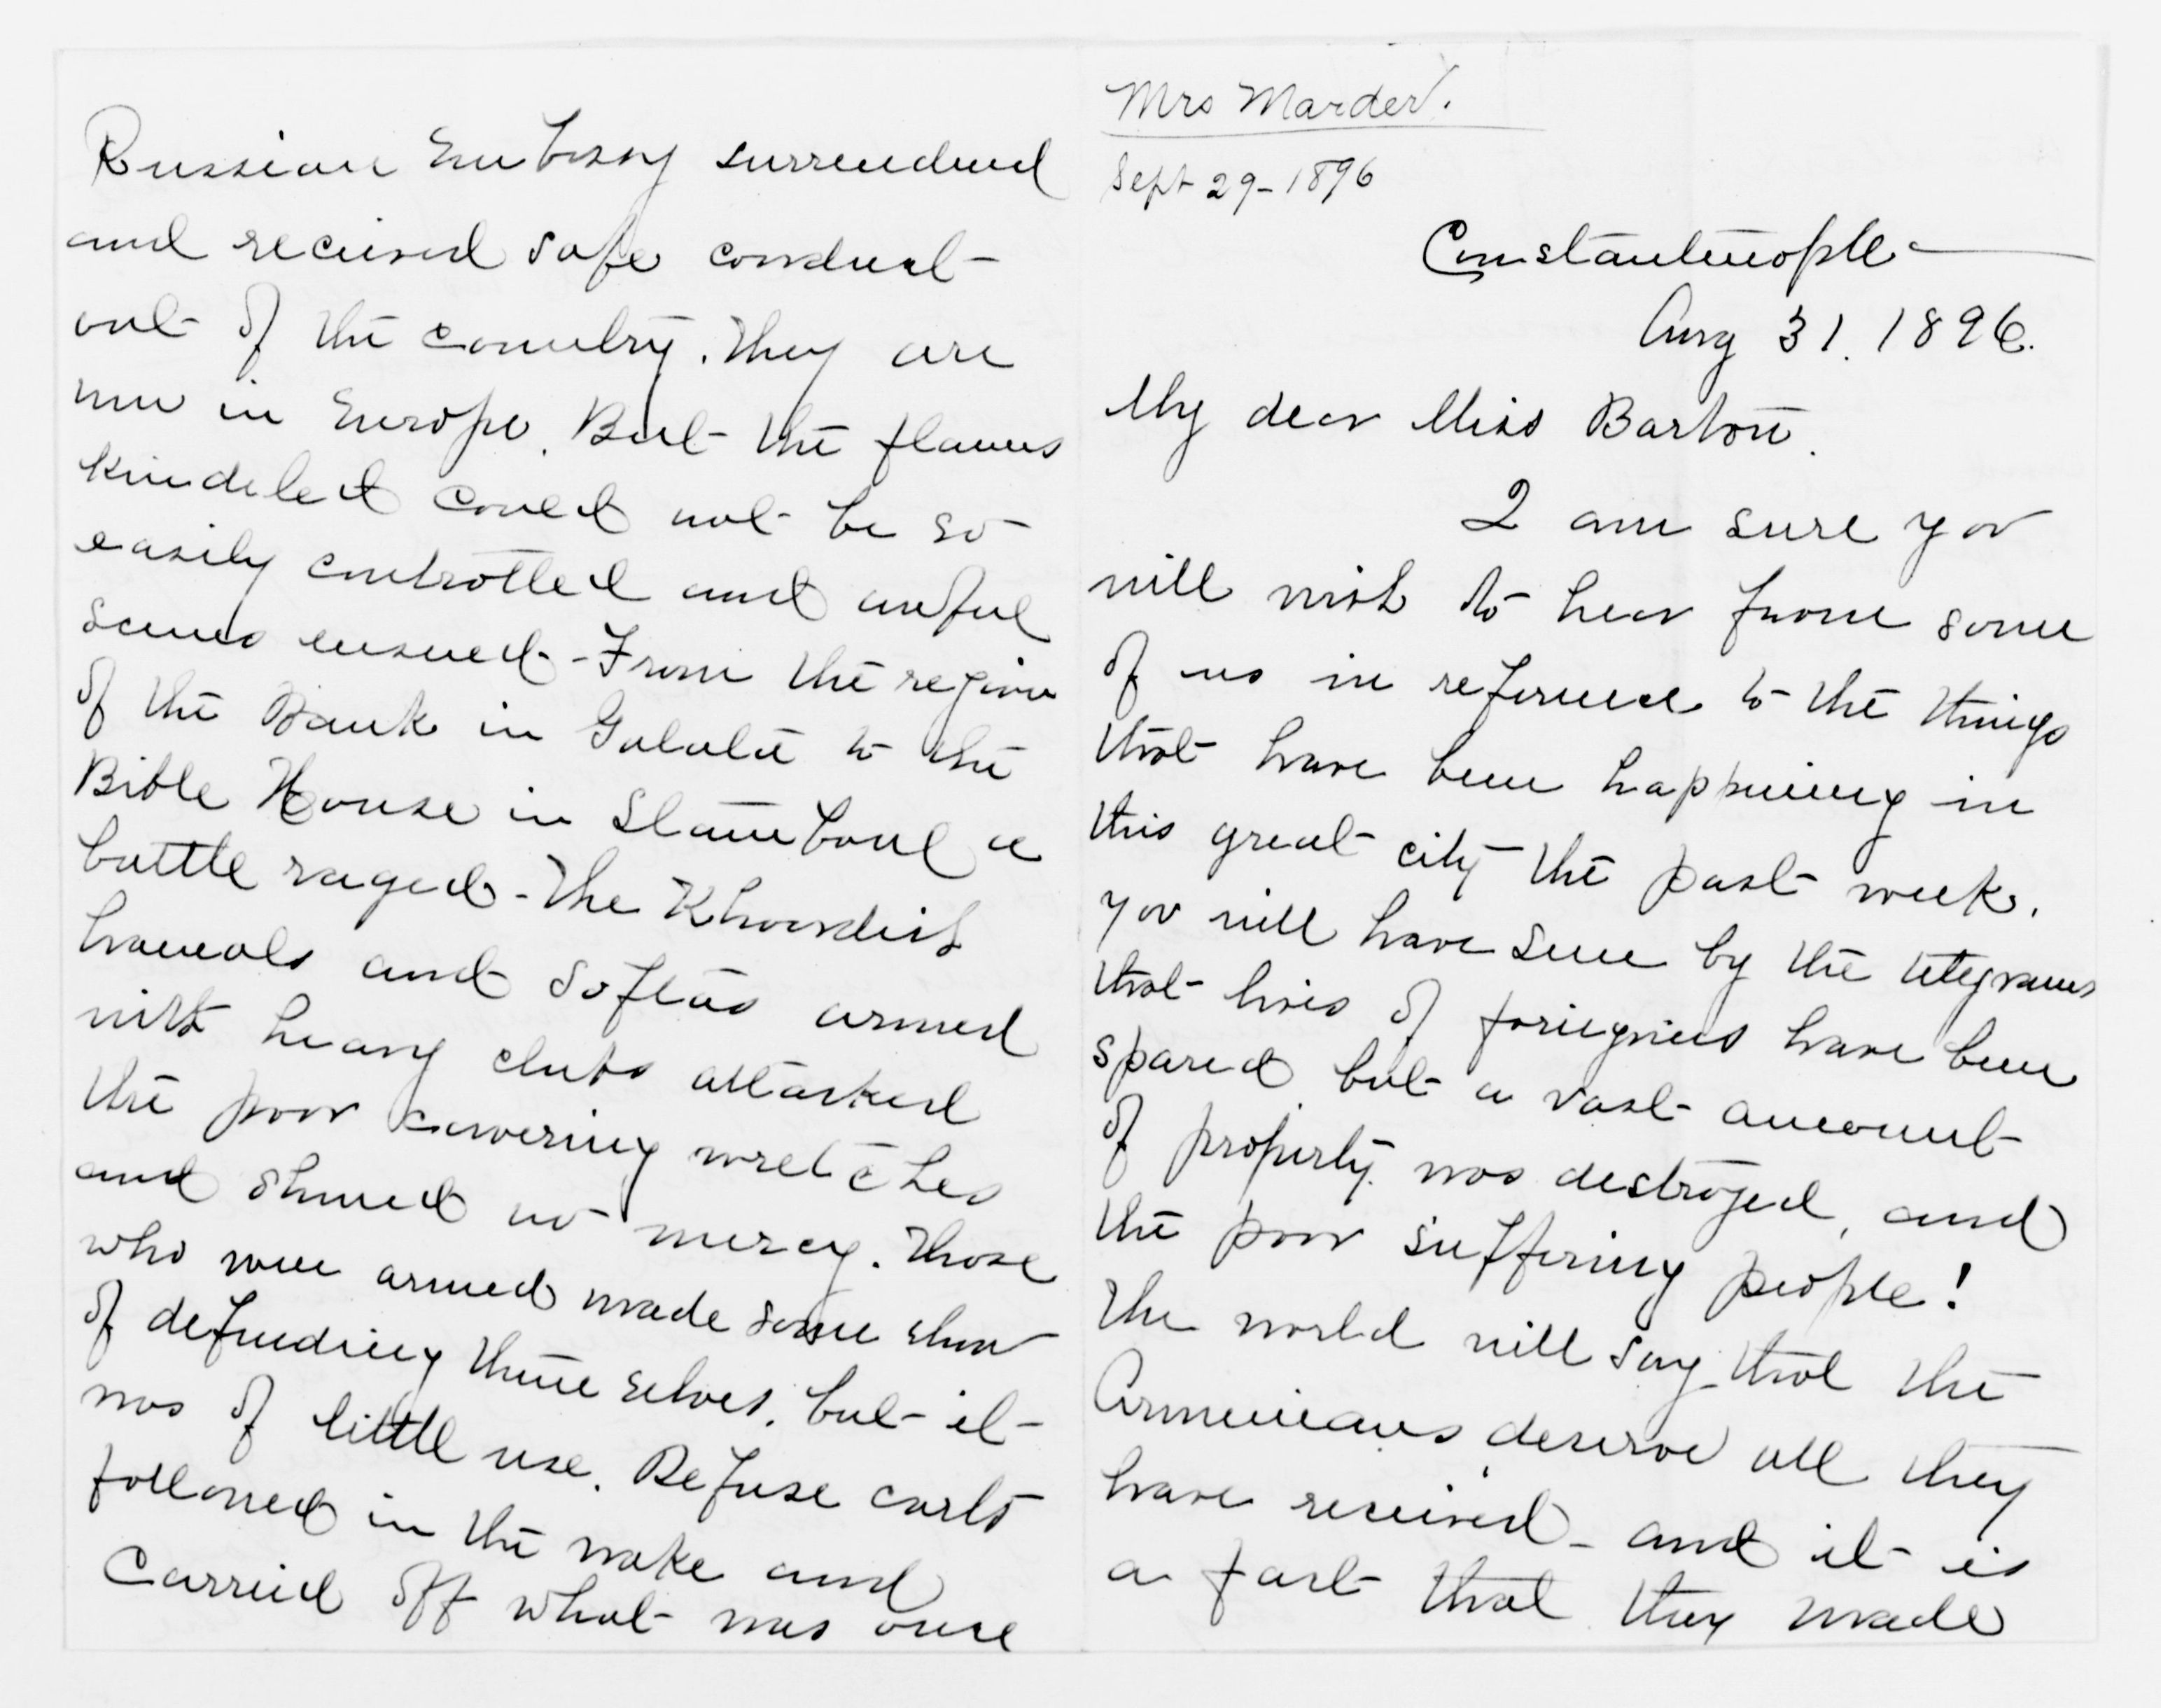 Mrs Marder.
Sept 29-1896
Constantinople
Aug 31. 1896.
My dear Miss Barton.
I am sure you
will wish to hear from some
of us in reference to the things
that have been happening in
this great city the past week.
You will have seen by the telegrams
that lives of foriegners have been
spared but a vast amount
of property was destroyed, and
the poor suffering people!
The world will say that the
Armenians deserve all they
have received - and it is
a fact that they made
Russian Embassy surrendered
and recieved safe conduct
out of the country. They are
now in Europe. But the flames
kindeled could not be so
easily controlled and awful
scenes ensued - From the region
of the Bank in Galata to the
Bible House in Stamboul a
battle raged - The Khoordish
hamals and Softas armed
with heavy clubs attacked
the poor cowering wretches
and showed no mercy. Those
who were armed made some show
of defending themselves, but it
was of little use. Refuse carts
followed in the wake and
carried off what was once